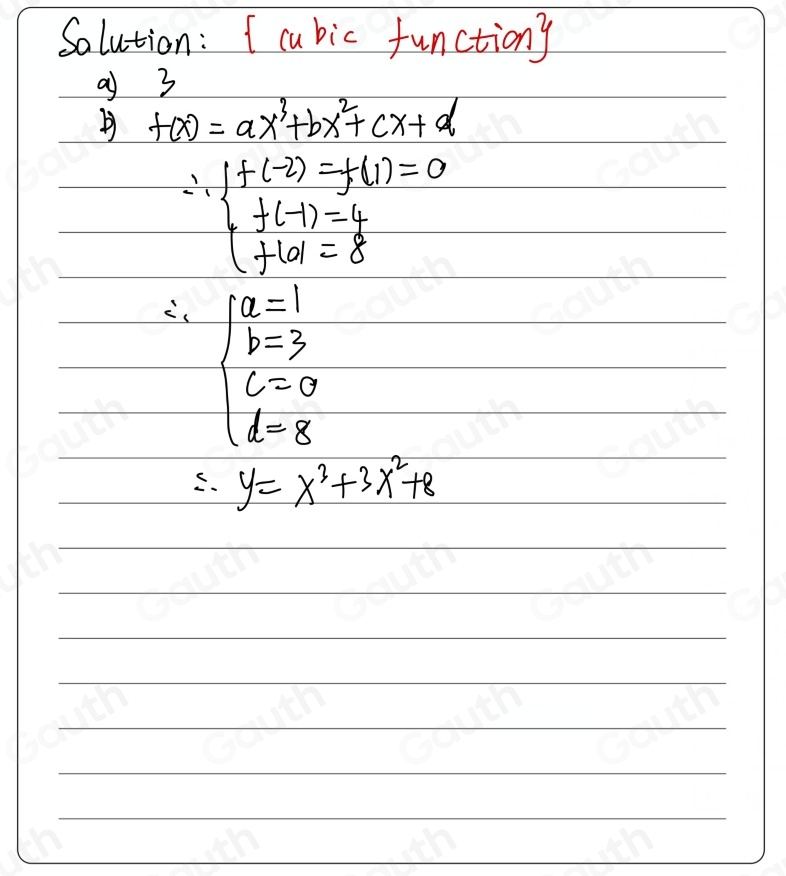 Solution: { cubic function}
a) 3
b) f(x) = ax³+bx²+cx+d
∴ { f(-2) = f(1) = 0
f(-1) = 4
f(0) = 8
∴ { a = 1
b = 3
c = 0
d = 8
∴ y = x³+3x²+8
Gauth